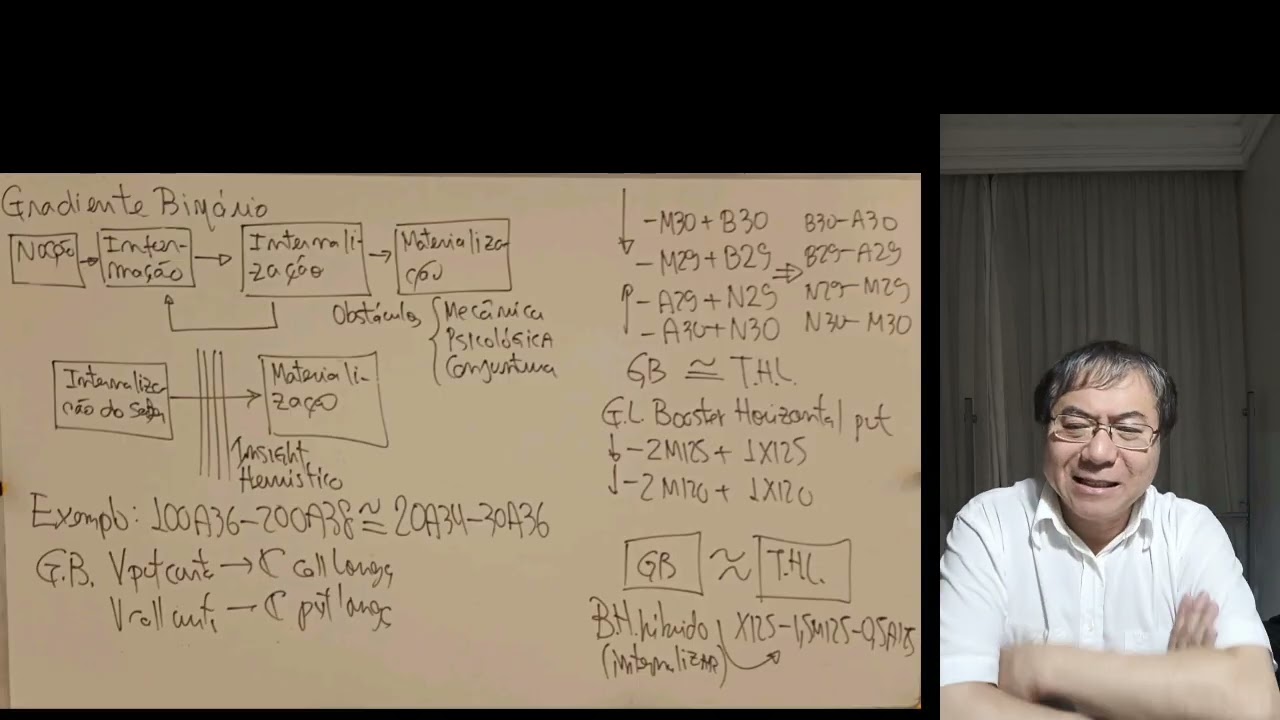 Gradiente Binário
Noção
Infor-
mação
Internali-
zação
Materializa-
ção
Obstáculos
Mecânica
Psicológica
Conjuntura
Internaliza-
ção do
Materiali-
zação
Insight
Heurístico
Exemplo: 100A36-200A38≅20A34-30A36
G.B. Vput curta → C call longa
V call → C put longa
-M30+B30
-M29+B29
-A29+N29
-A30+N30
⇒
B30-A30
B29-A29
N29-M29
N30-M30
GB ≅ T.H.L.
G.L. Booster Horizontal put
-2M125+1X125
-2M120+1X120
GB ≈ T.H.L.
B.H. híbrido X125-1,5M125-0,5A125
(internalizar)